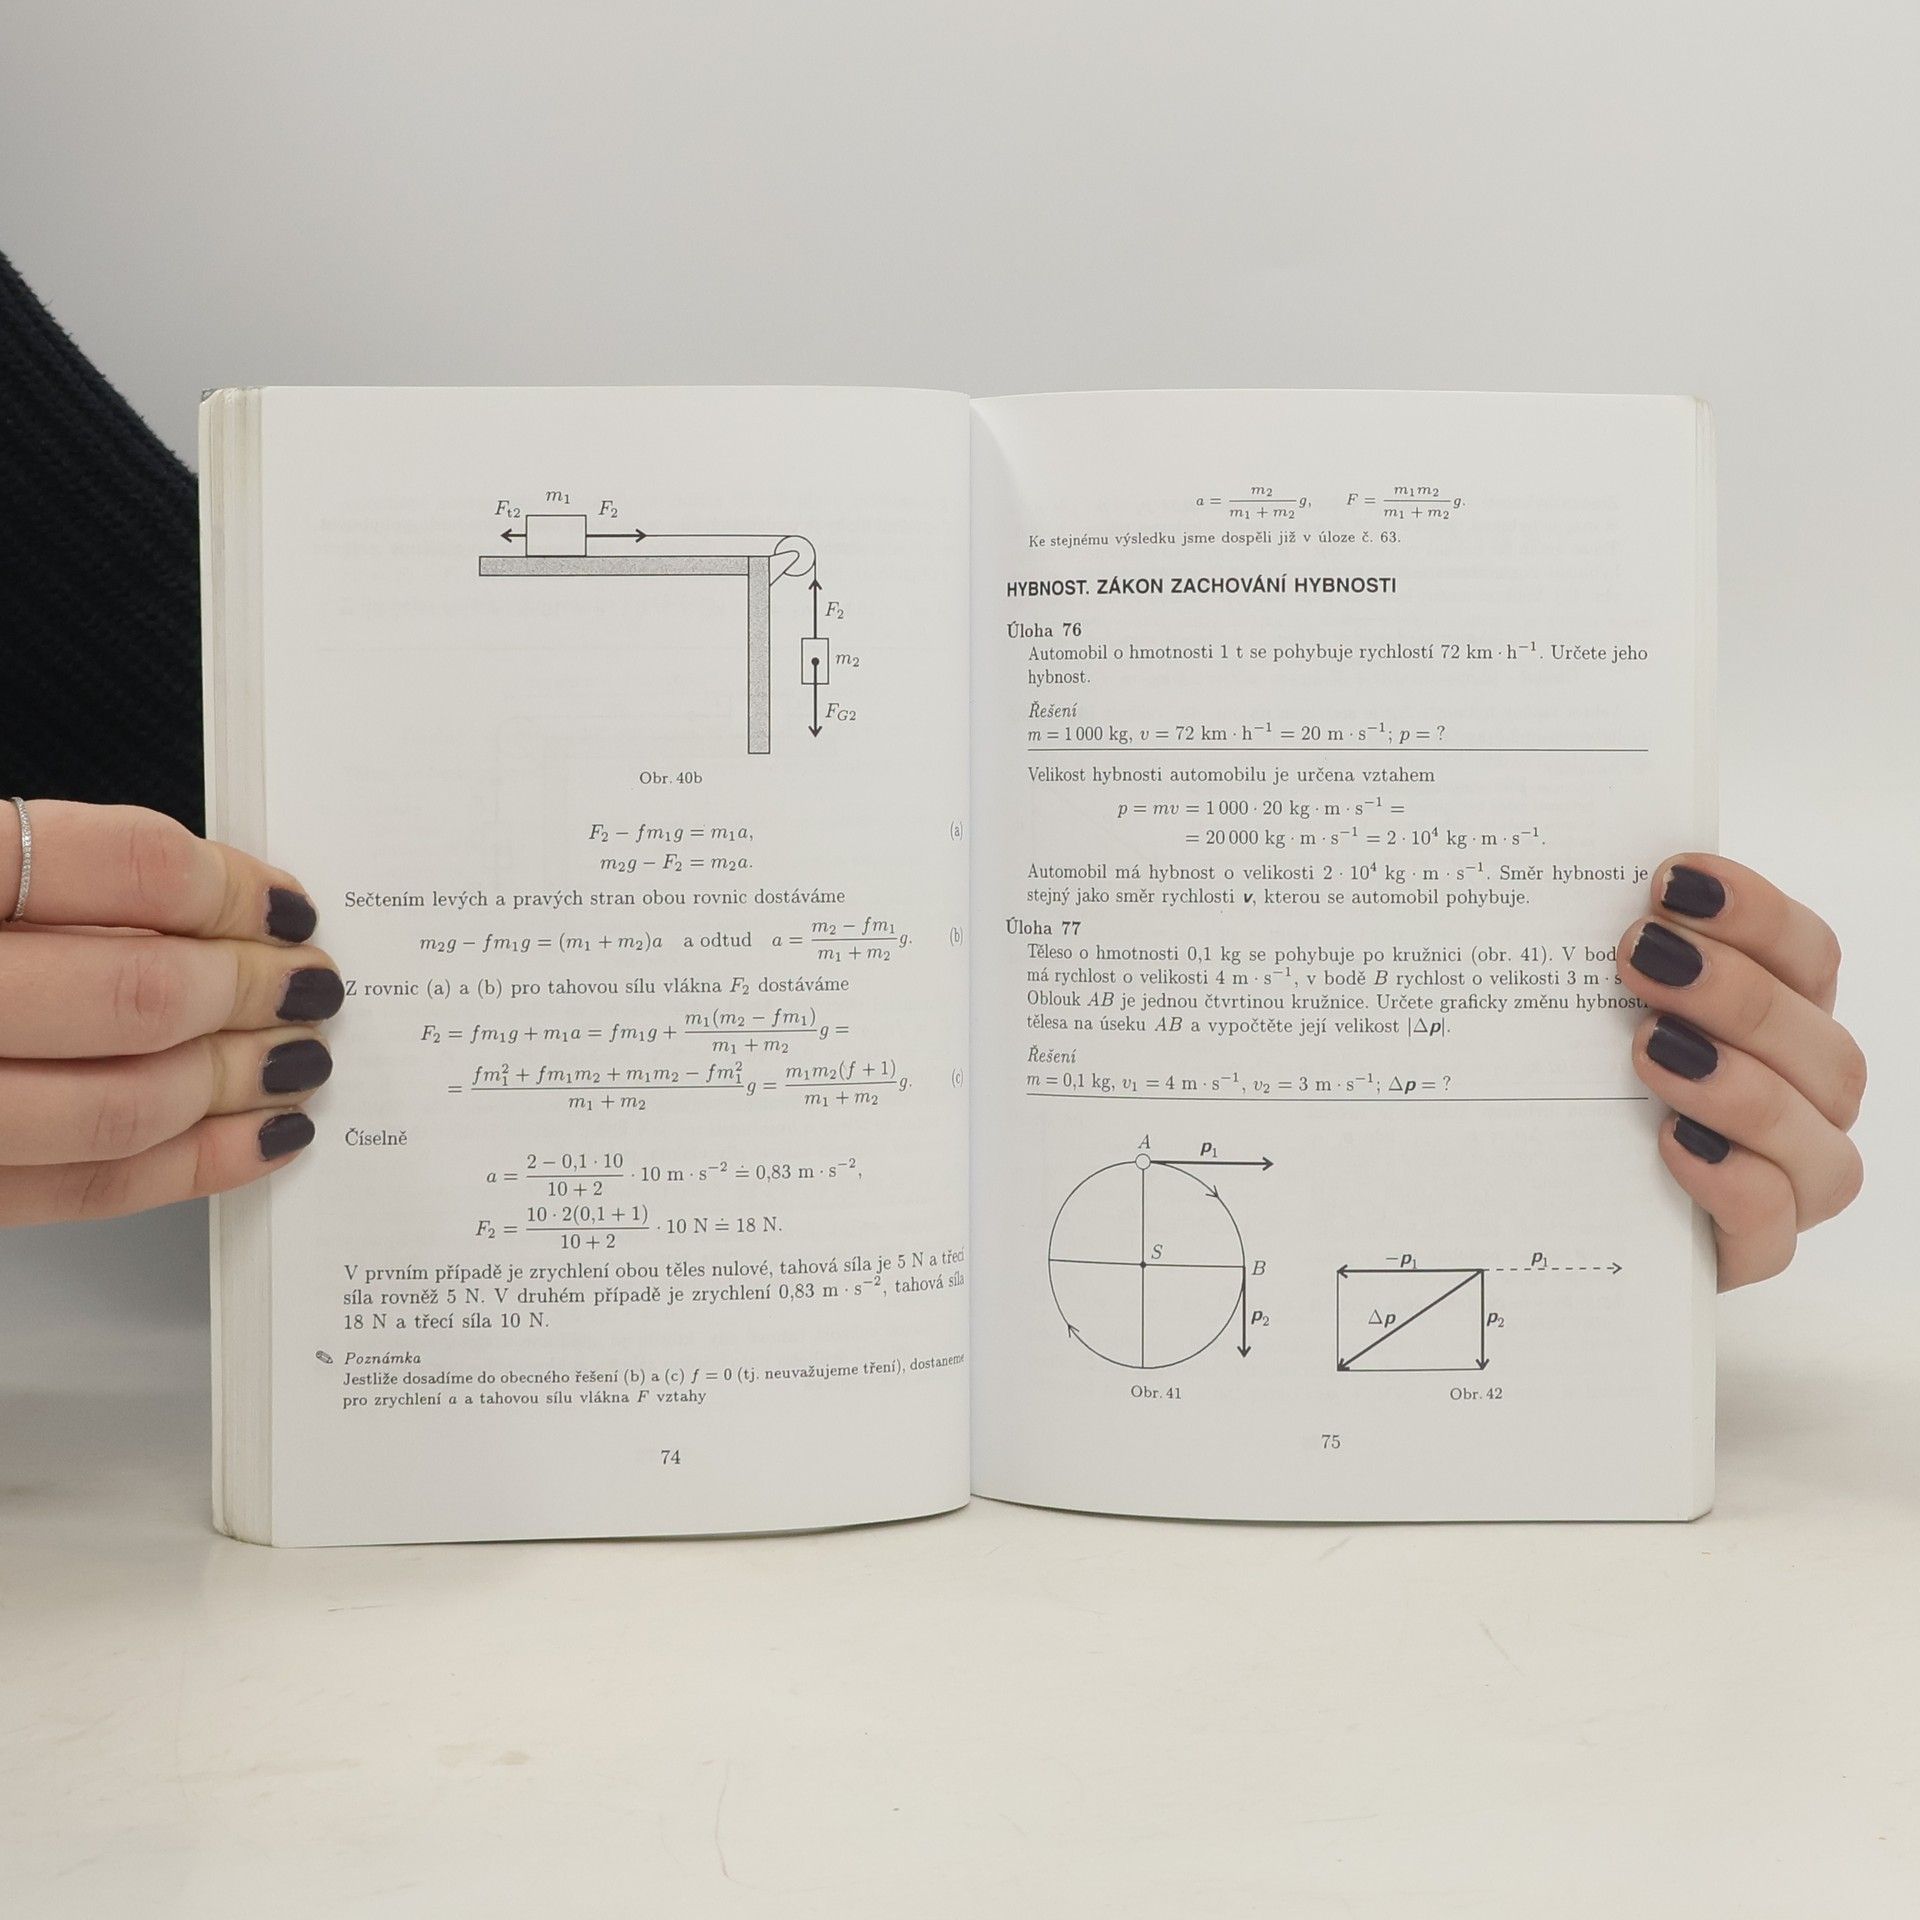 m₁
Ft2
F₂
F₂
m₂
FG2
Obr. 40b
F₂ − fm₁g = m₁a, (a)
m₂g − F₂ = m₂a.
Sečtením levých a pravých stran obou rovnic dostáváme
m₂g − fm₁g = (m₁ + m₂)a a odtud a = (m₂ − fm₁)/(m₁ + m₂) g. (b)
Z rovnic (a) a (b) pro tahovou sílu vlákna F₂ dostáváme
F₂ = fm₁g + m₁a = fm₁g + m₁(m₂ − fm₁)/(m₁ + m₂) g =
= (fm₁² + fm₁m₂ + m₁m₂ − fm₁²)/(m₁ + m₂) g = m₁m₂(f + 1)/(m₁ + m₂) g. (c)
Číselně
a = (2 − 0,1 · 10)/(10 + 2) · 10 m · s⁻² ≐ 0,83 m · s⁻²,
F₂ = 10 · 2(0,1 + 1)/(10 + 2) · 10 N ≐ 18 N.
V prvním případě je zrychlení obou těles nulové, tahová síla je 5 N a třecí
síla rovněž 5 N. V druhém případě je zrychlení 0,83 m · s⁻², tahová síla
18 N a třecí síla 10 N.
✎ Poznámka
Jestliže dosadíme do obecného řešení (b) a (c) f = 0 (tj. neuvažujeme tření), dostaneme
pro zrychlení a a tahovou sílu vlákna F vztahy
74
a = m₂/(m₁ + m₂) g, F = m₁m₂/(m₁ + m₂) g.
Ke stejnému výsledku jsme dospěli již v úloze č. 63.
HYBNOST. ZÁKON ZACHOVÁNÍ HYBNOSTI
Úloha 76
Automobil o hmotnosti 1 t se pohybuje rychlostí 72 km · h⁻¹. Určete jeho
hybnost.
Řešení
m = 1 000 kg, v = 72 km · h⁻¹ = 20 m · s⁻¹; p = ?
Velikost hybnosti automobilu je určena vztahem
p = mv = 1 000 · 20 kg · m · s⁻¹ =
= 20 000 kg · m · s⁻¹ = 2 · 10⁴ kg · m · s⁻¹.
Automobil má hybnost o velikosti 2 · 10⁴ kg · m · s⁻¹. Směr hybnosti je
stejný jako směr rychlosti v, kterou se automobil pohybuje.
Úloha 77
Těleso o hmotnosti 0,1 kg se pohybuje po kružnici (obr. 41). V bod
má rychlost o velikosti 4 m · s⁻¹, v bodě B rychlost o velikosti 3 m · s
Oblouk AB je jednou čtvrtinou kružnice. Určete graficky změnu hybnosti
tělesa na úseku AB a vypočtěte její velikost |Δp|.
Řešení
m = 0,1 kg, v₁ = 4 m · s⁻¹, v₂ = 3 m · s⁻¹; Δp = ?
A
p₁
S
B
p₂
Obr. 41
−p₁
p₁
Δp
p₂
Obr. 42
75